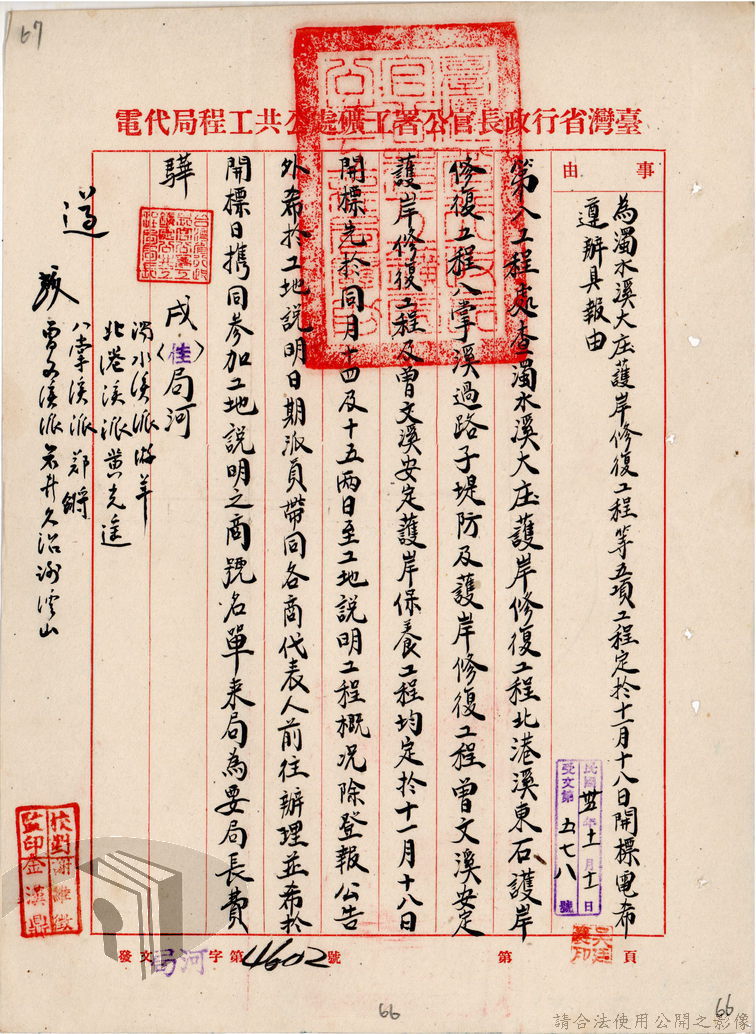 67
臺灣省行政長官公署工礦處公共工程局代電
事由
為濁水溪大庄護岸修復工程等五項工程定於十一月十八日開標電希
遵辦具報由
民國卅五年十一月十二日
受文第五七八號
第八工程處查濁水溪大庄護岸修復工程北港溪東石護岸
修復工程八掌溪過路子堤防及護岸修復工程曾文溪安定
護岸修復工程及曾文溪安定護岸保養工程均定於十一月十八日
開標先於同月十四及十五兩日至工地說明工程概況除登報公告
外希於工地說明日期派員帶同各商代表人前往辦理並希於
開標日攜同參加工地說明之商號名單來局為要局長費
驊
戌(佳)局河
濁水溪派游羊
北港溪派黃克達
八掌溪派鄭鏘
曾文溪派
校對謝維敬
監印金漢鼎
發文局河字第4602號
第 頁
66
66
請合法使用公開之影像